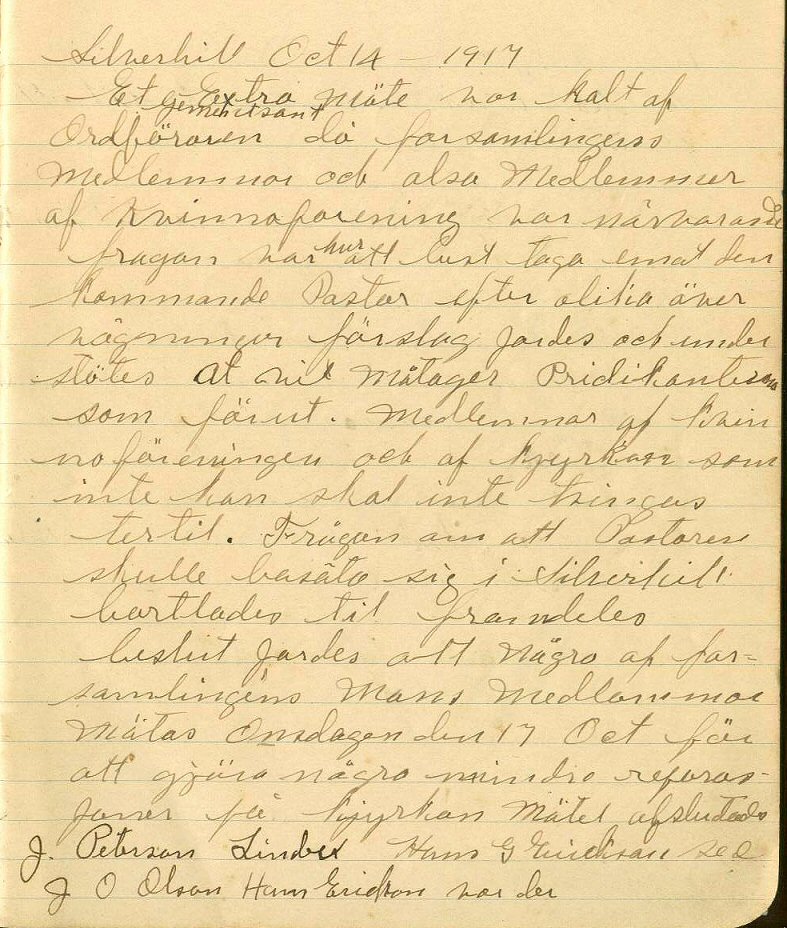 Silverhill Oct 14 - 1917
Et Extra möte var kalt af
gemensant
Ordföraren då forsamlingens
Medlemmar och alsa Medlemmer
af Kvinnaforening var närvarande
fragan var hur att best taga emot den
kommande Pastor efter olika över
vägningar förslag jordes och under
stötes at vi Måtager Pridikanten
som förut. Medlemmar af kvin
noföreningen och af kjyrkan som
inte kan skal inte tvingas
tertil. Frågan om att Pastoren
skulle basäta sig i Silverhill
bortlades til framdeles
beslut jordes att några af for-
samlingens Mans Medlemmar
Mätas Onsdagen den 17 Oct för
att gjöra några mindre reparas-
joner på kjyrkan Mötet afslutades
J. Peterson Linder Hans G Erickson sec
J O Olson Hans Erickson var der